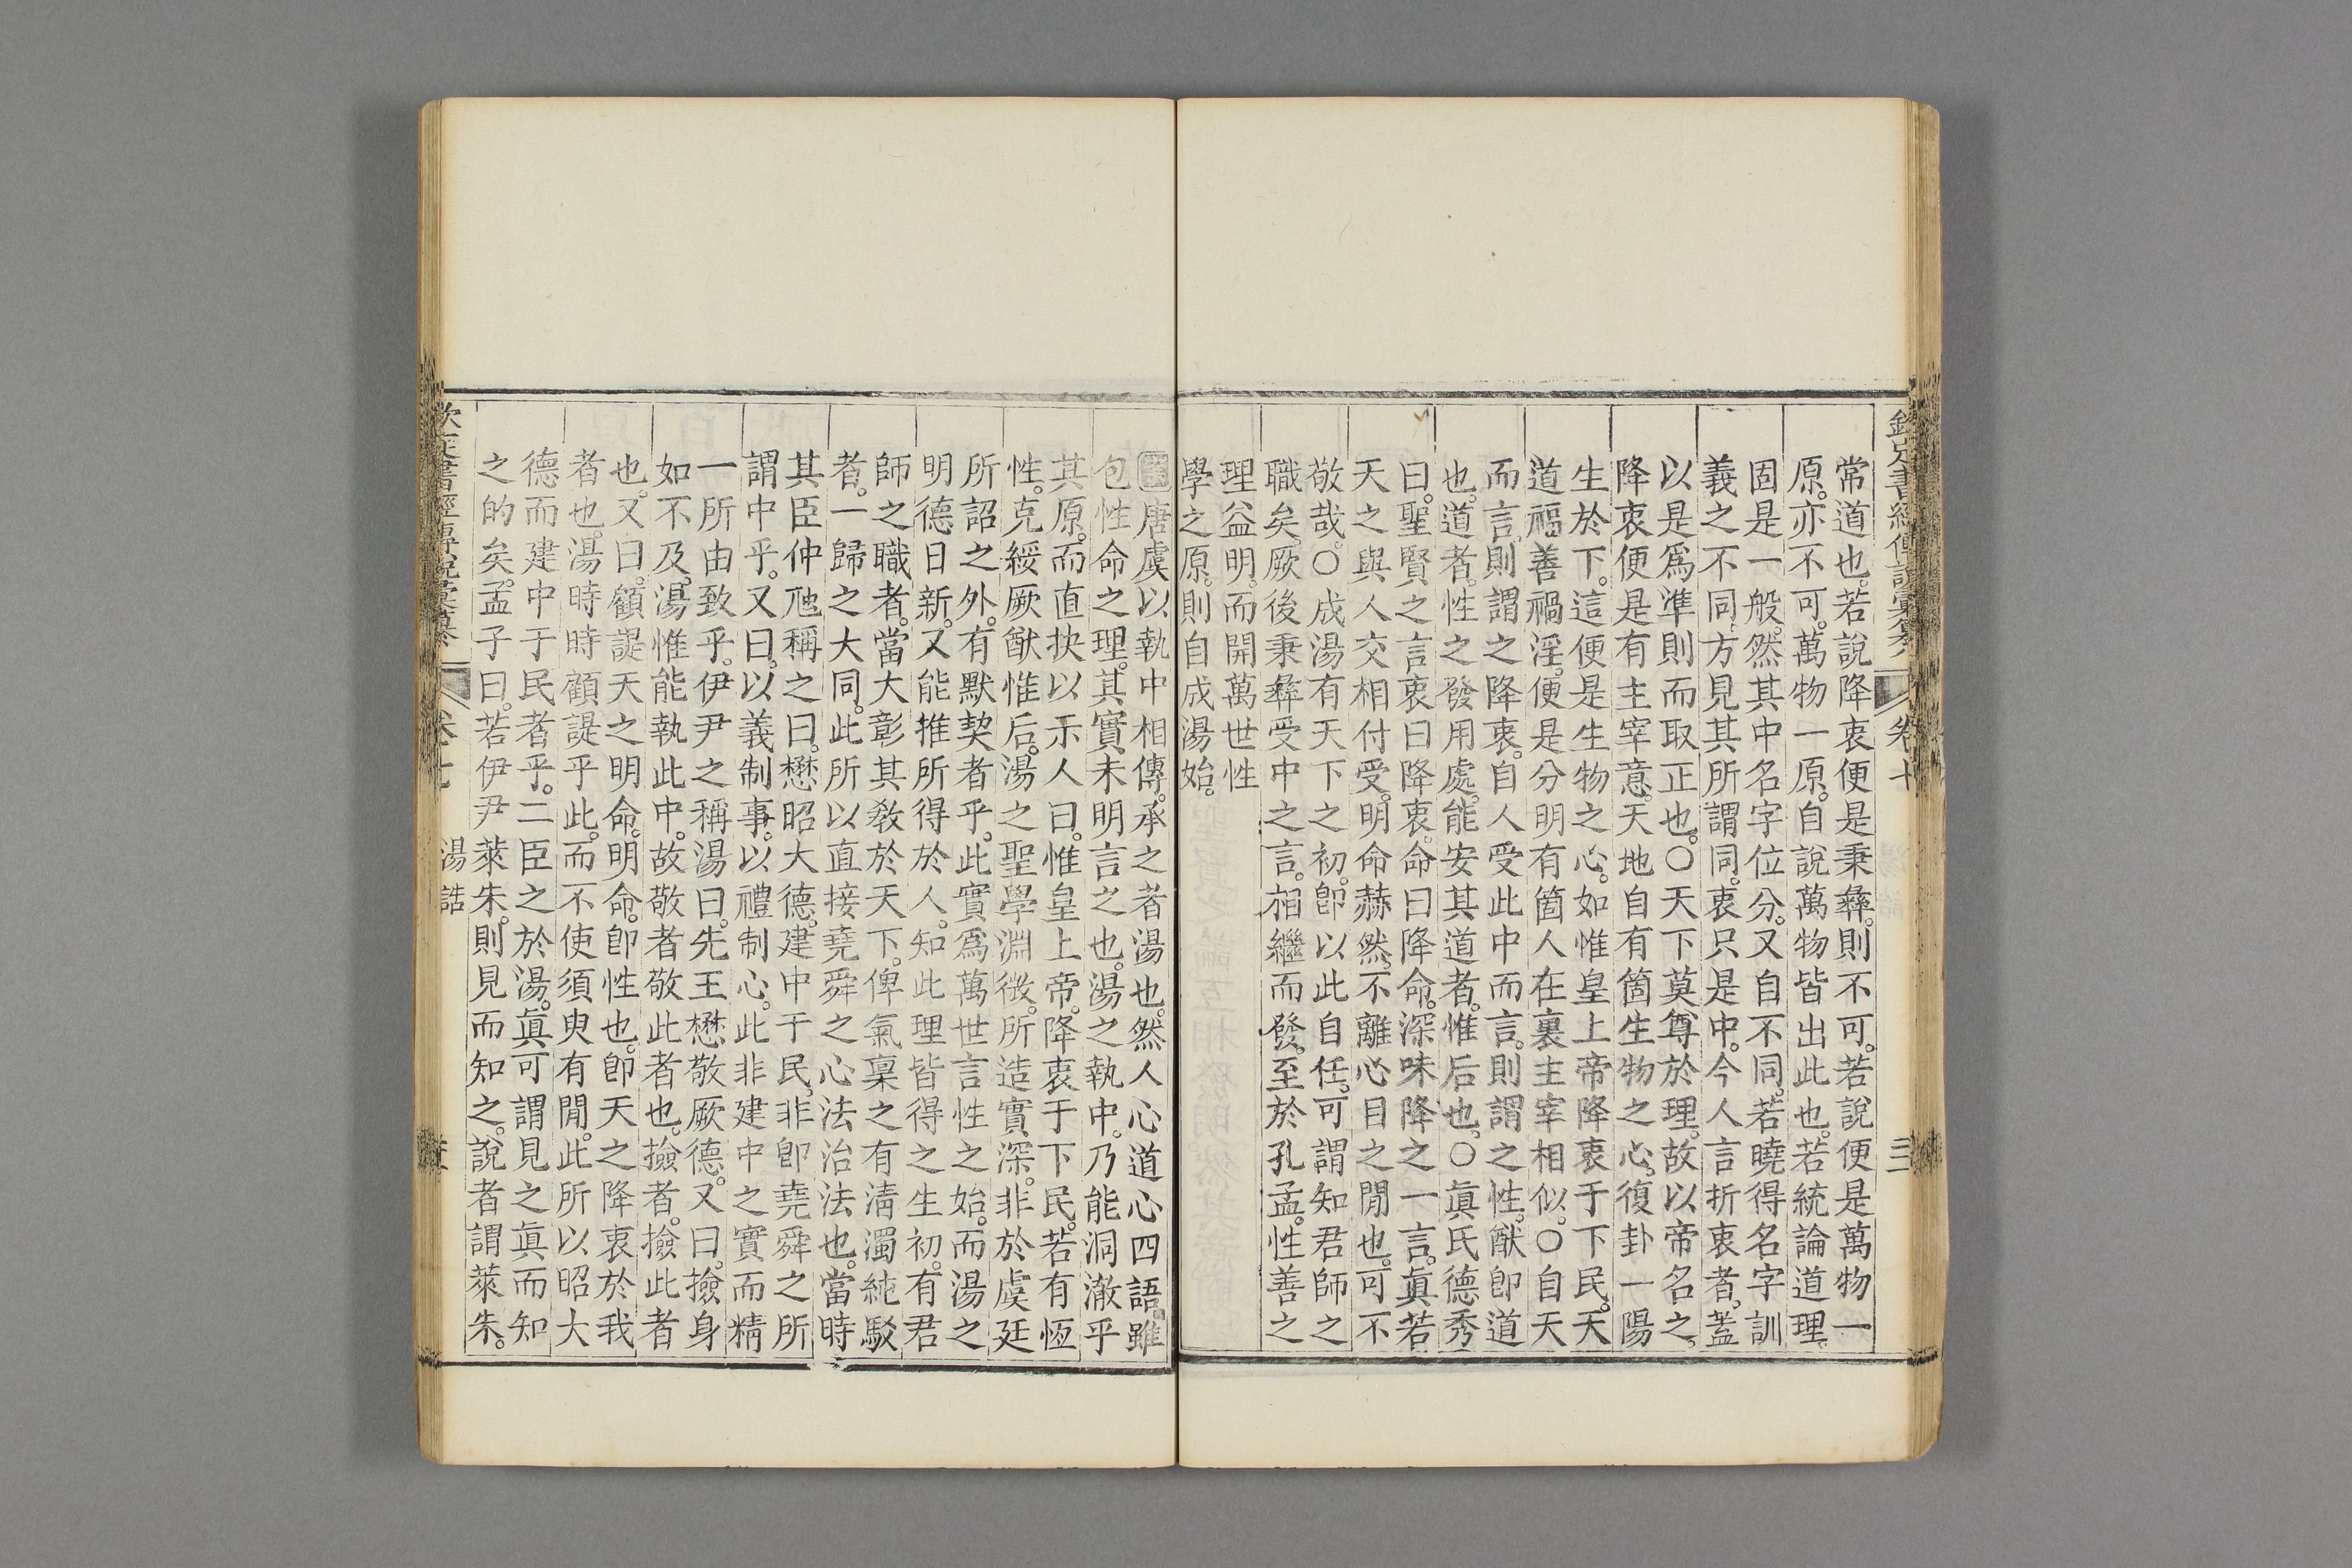 欽定書經傳說彙纂 卷七 三
常道也。若說降衷便是秉彝。則不可。若說便是萬物一
原。亦不可。萬物一原。自說萬物皆出此也。若統論道理。
固是一般。然其中名字位分。又自不同。若曉得名字訓
義之不同。方見其所謂同。衷只是中。今人言折衷者。蓋
以是爲準則而取正也。○天下莫尊於理。故以帝名之。
降衷便是有主宰意。天地自有箇生物之心。復卦一陽
生於下。這便是生物之心。如惟皇上帝降衷于下民。天
道福善禍淫。便是分明有箇人在裏主宰相似。○自天
而言。則謂之降衷。自人受此中而言。則謂之性。猷卽道
也。道者。性之發用處。能安其道者。惟后也。○眞氏德秀
曰。聖賢之言衷曰降衷。命曰降命。深味降之一言。眞若
天之與人交相付受。明命赫然。不離心目之閒也。可不
敬哉。○成湯有天下之初。卽以此自任。可謂知君師之
職矣。厥後秉彝受中之言。相繼而發。至於孔孟。性善之
理益明。而開萬世性
學之原。則自成湯始。
唐虞以執中相傳。承之者湯也。然人心道心四語。雖
包性命之理。其實未明言之也。湯之執中。乃能洞澈乎
其原。而直抉以示人曰。惟皇上帝。降衷于下民。若有恆
性。克綏厥猷惟后。湯之聖學淵微。所造實深。非於虞廷
所詔之外。有默契者乎。此實爲萬世言性之始。而湯之
明德日新。又能推所得於人。知此理皆得之生初。有君
師之職者。當大彰其敎於天下。俾氣稟之有淸濁純駁
者。一歸之大同。此所以直接堯舜之心法治法也。當時
其臣仲虺稱之曰。懋昭大德。建中于民。非卽堯舜之所
謂中乎。又曰。以義制事。以禮制心。此非建中之實而精
一所由致乎。伊尹之稱湯曰。先王懋敬厥德。又曰。撿身
如不及。湯惟能執此中。故敬者敬此者也。撿者。撿此者
也。又曰。顧諟天之明命。明命。卽性也。卽天之降衷於我
者也。湯時時顧諟乎此。而不使須臾有閒。此所以昭大
德而建中于民者乎。二臣之於湯。眞可謂見之眞而知
之的矣。孟子曰。若伊尹萊朱。則見而知之。說者謂萊朱。
欽定書經傳說彙纂 卷七 湯誥